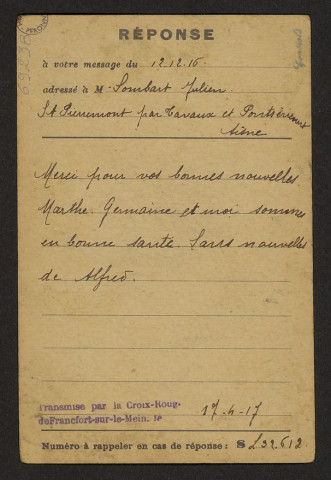 RÉPONSE
à votre message du 12.12.16.
adressé à M. Sombart Julien
St Pierremont par Tavaux et Pontséricourt
Aisne
Merci pour vos bonnes nouvelles
Marthe. Germaine et moi sommes
en bonne santé. Sans nouvelles
de Alfred.
Transmise par la Croix-Roug-
deFrancfort-sur-le-Mein, le 17-4-17
Numéro à rappeler en cas de réponse : S 232.612